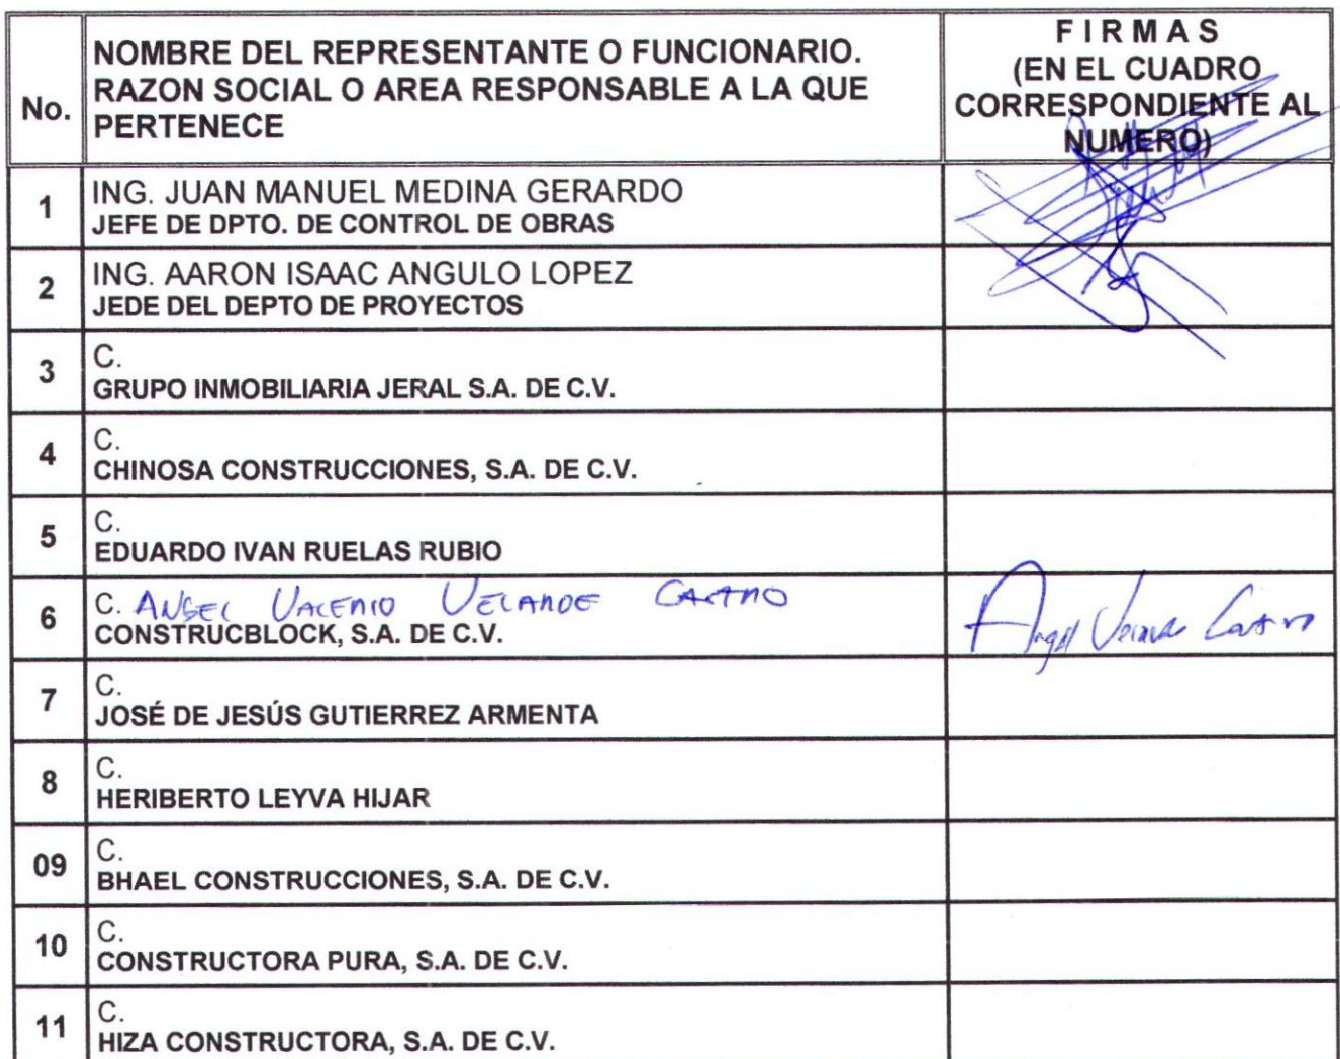 No.
NOMBRE DEL REPRESENTANTE O FUNCIONARIO.
RAZON SOCIAL O AREA RESPONSABLE A LA QUE
PERTENECE
FIRMAS
(EN EL CUADRO
CORRESPONDIENTE AL
NUMERO)
1
ING. JUAN MANUEL MEDINA GERARDO
JEFE DE DPTO. DE CONTROL DE OBRAS
2
ING. AARON ISAAC ANGULO LOPEZ
JEDE DEL DEPTO DE PROYECTOS
3
C.
GRUPO INMOBILIARIA JERAL S.A. DE C.V.
4
C.
CHINOSA CONSTRUCCIONES, S.A. DE C.V.
5
C.
EDUARDO IVAN RUELAS RUBIO
6
C. ANGEL VELARDE CASTRO
CONSTRUCBLOCK, S.A. DE C.V.
Angel Velarde Castro
7
C.
JOSÉ DE JESÚS GUTIERREZ ARMENTA
8
C.
HERIBERTO LEYVA HIJAR
09
C.
BHAEL CONSTRUCCIONES, S.A. DE C.V.
10
C.
CONSTRUCTORA PURA, S.A. DE C.V.
11
C.
HIZA CONSTRUCTORA, S.A. DE C.V.